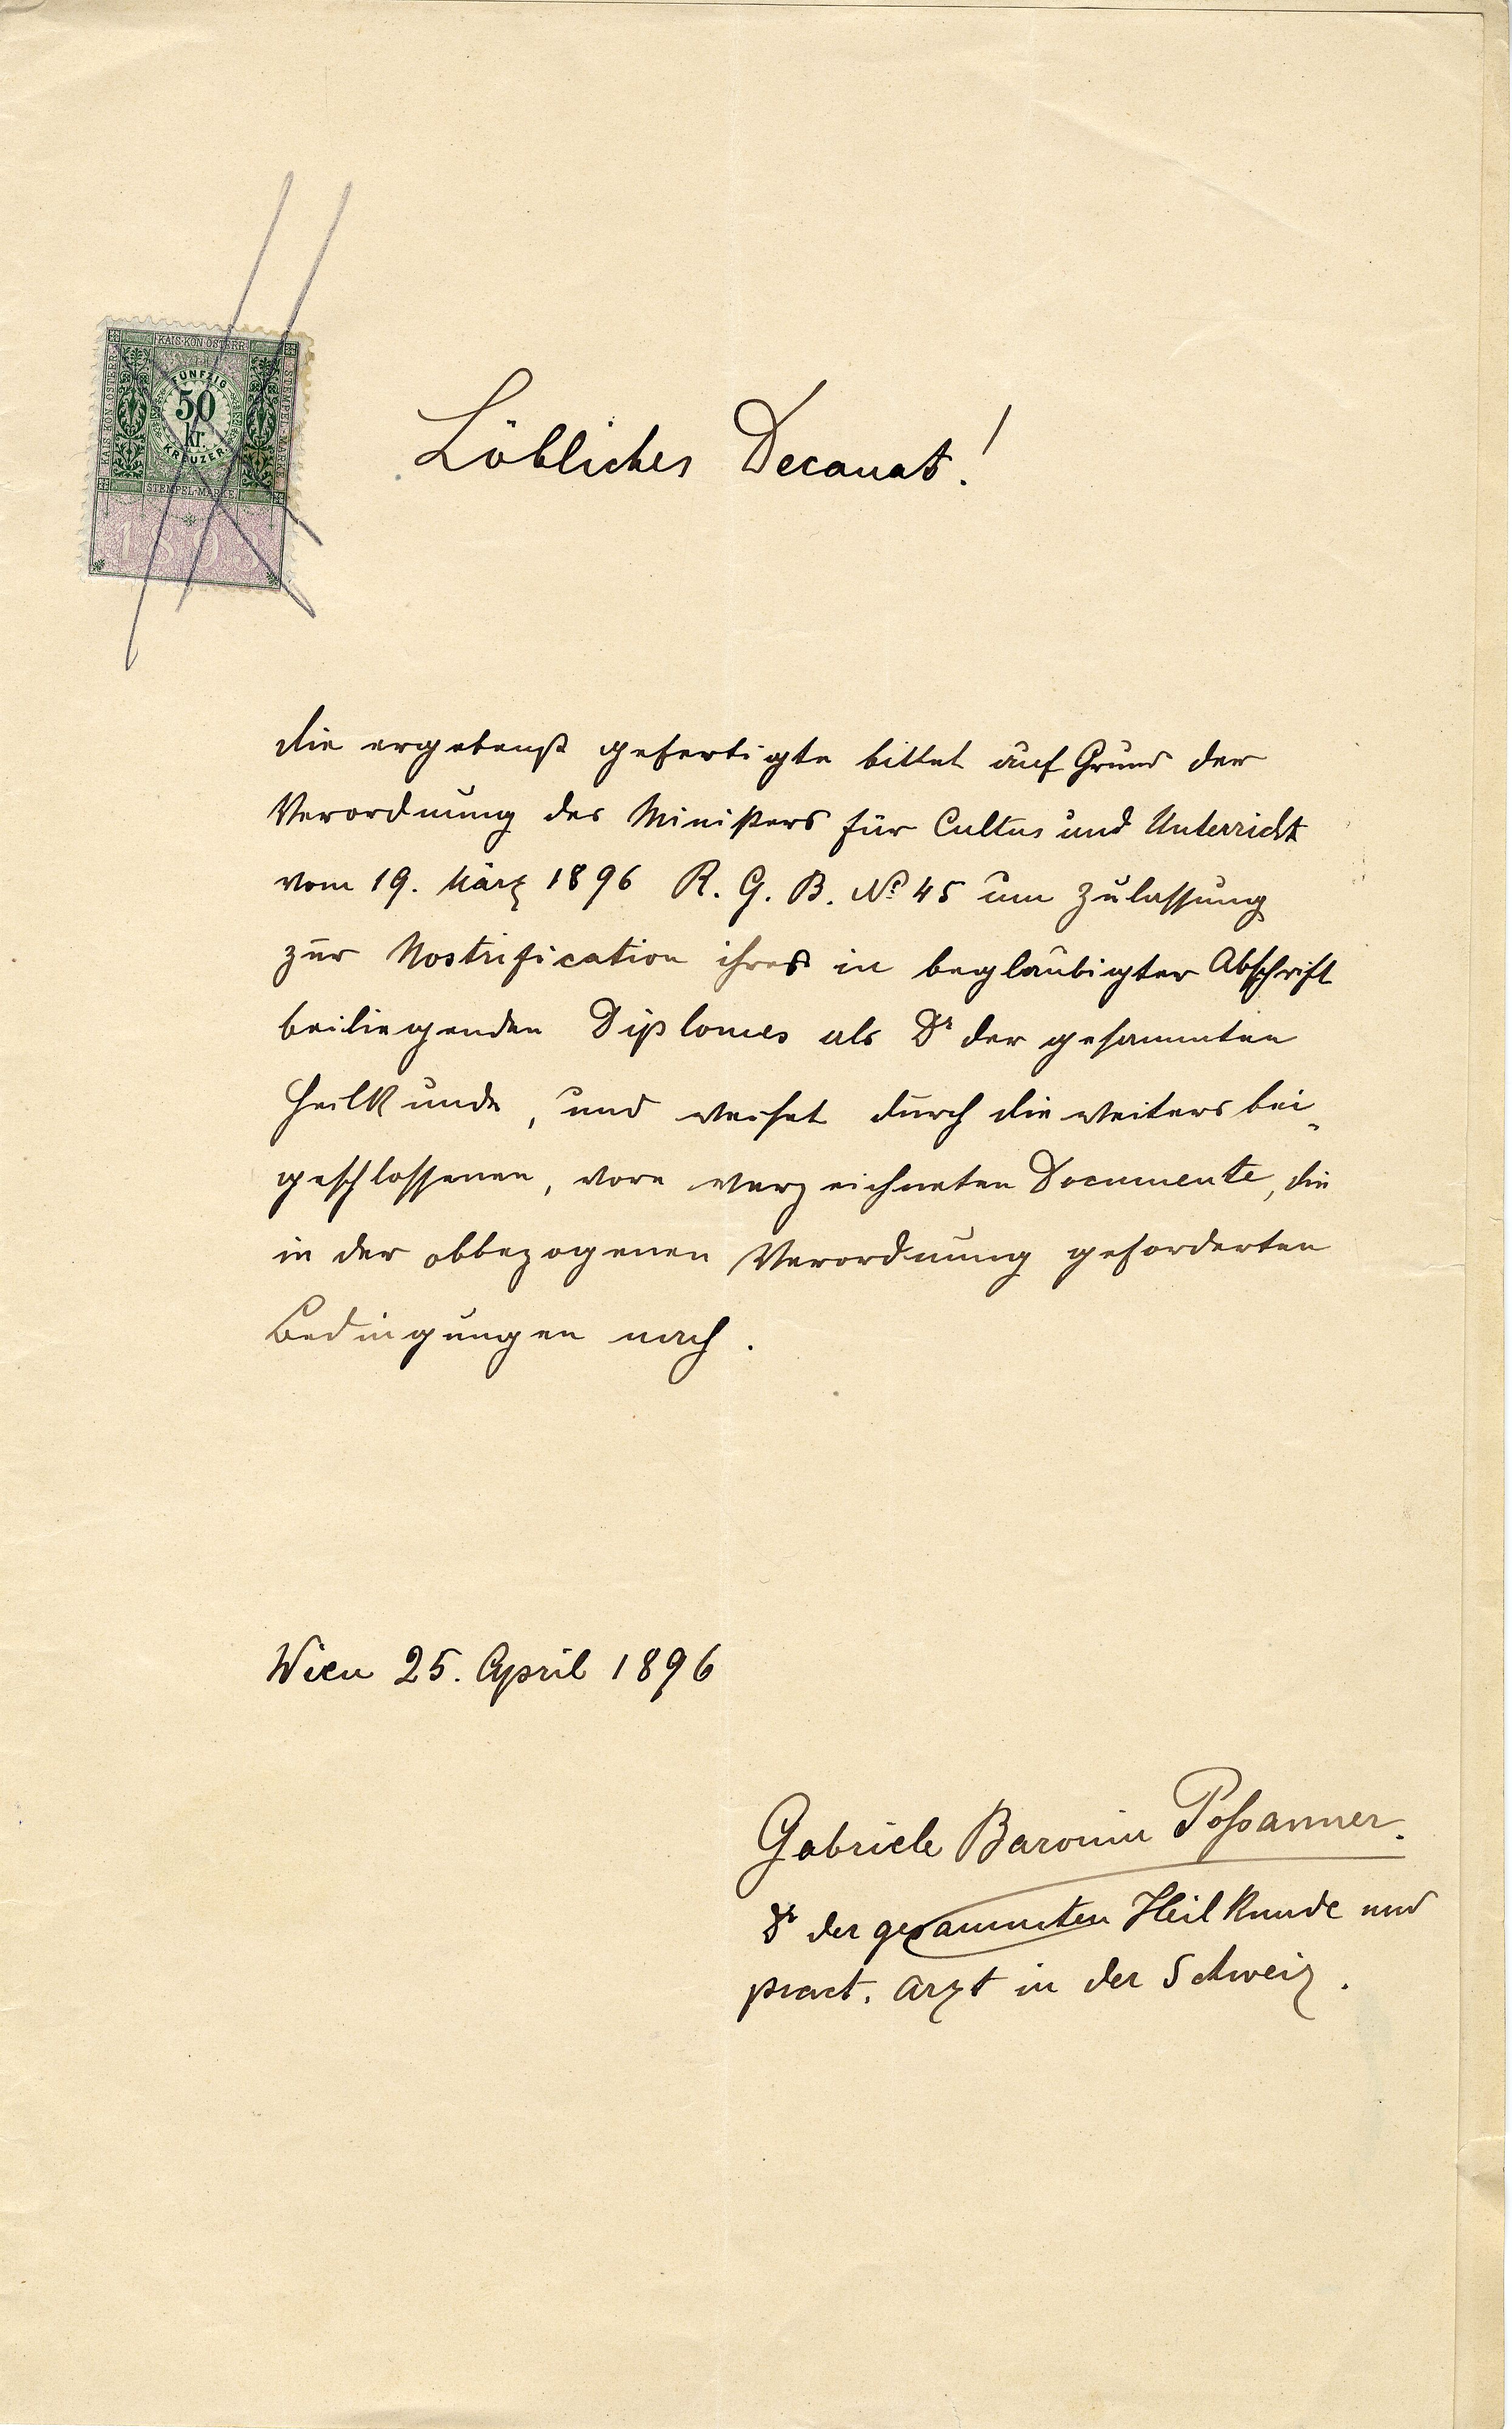 KAIS·KÖN·ÖSTERR·
KAIS·KÖN·ÖSTERR·
STEMPEL-MARKE
FÜNFZIG
50
kr.
KREUZER
STEMPEL-MARKE
Löbliches Decanat!
die ergebenst gefertigte bittet auf Grund der
Verordnung des Ministers für Cultus und Unterricht
vom 19. März 1896 R. G. B. No 45 um Zulassung
zur Nostrification ihres in beglaubigter Abschrift
beiliegenden Diplomes als Dr der gesammten
Heilkunde, und weiset durch die weiters bei-
geschlossenen, vorn verzeichneten Documente, die
in der obbezogenen Verordnung geforderten
Bedingungen nach.
Wien 25. April 1896
Gabriele Baronin Possanner.
Dr der gesammten Heilkunde und
pract. Arzt in der Schweiz.